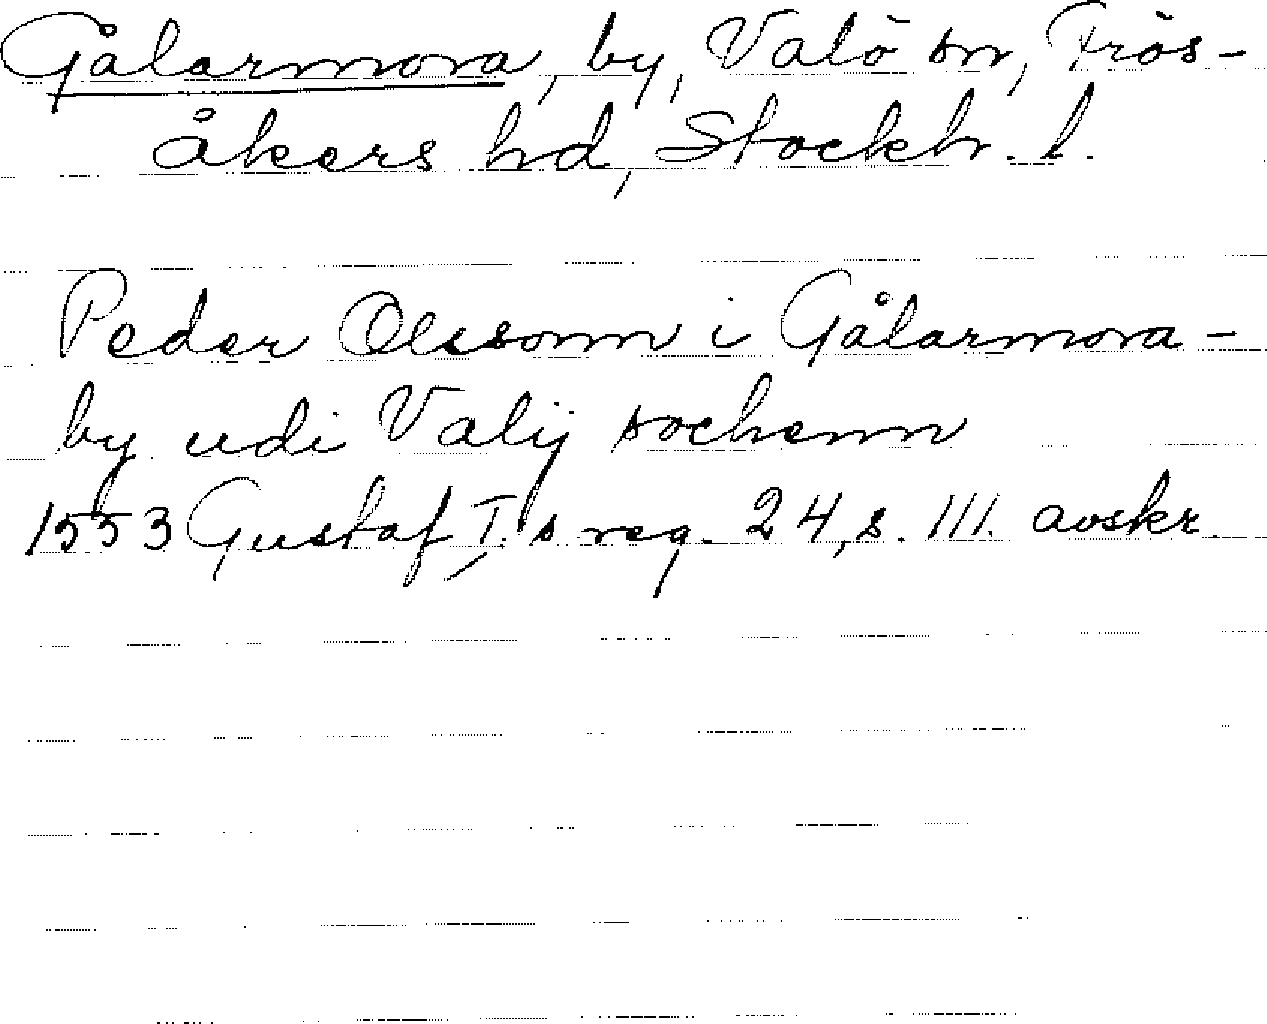 Gålarmora, by, Valö sn, Frös-
åkers hd, Stockh. l.
Peder Olssonn i Gålarmora-
by udi Valij sochenn
1553 Gustaf I.s reg. 24, s. 111. avskr.